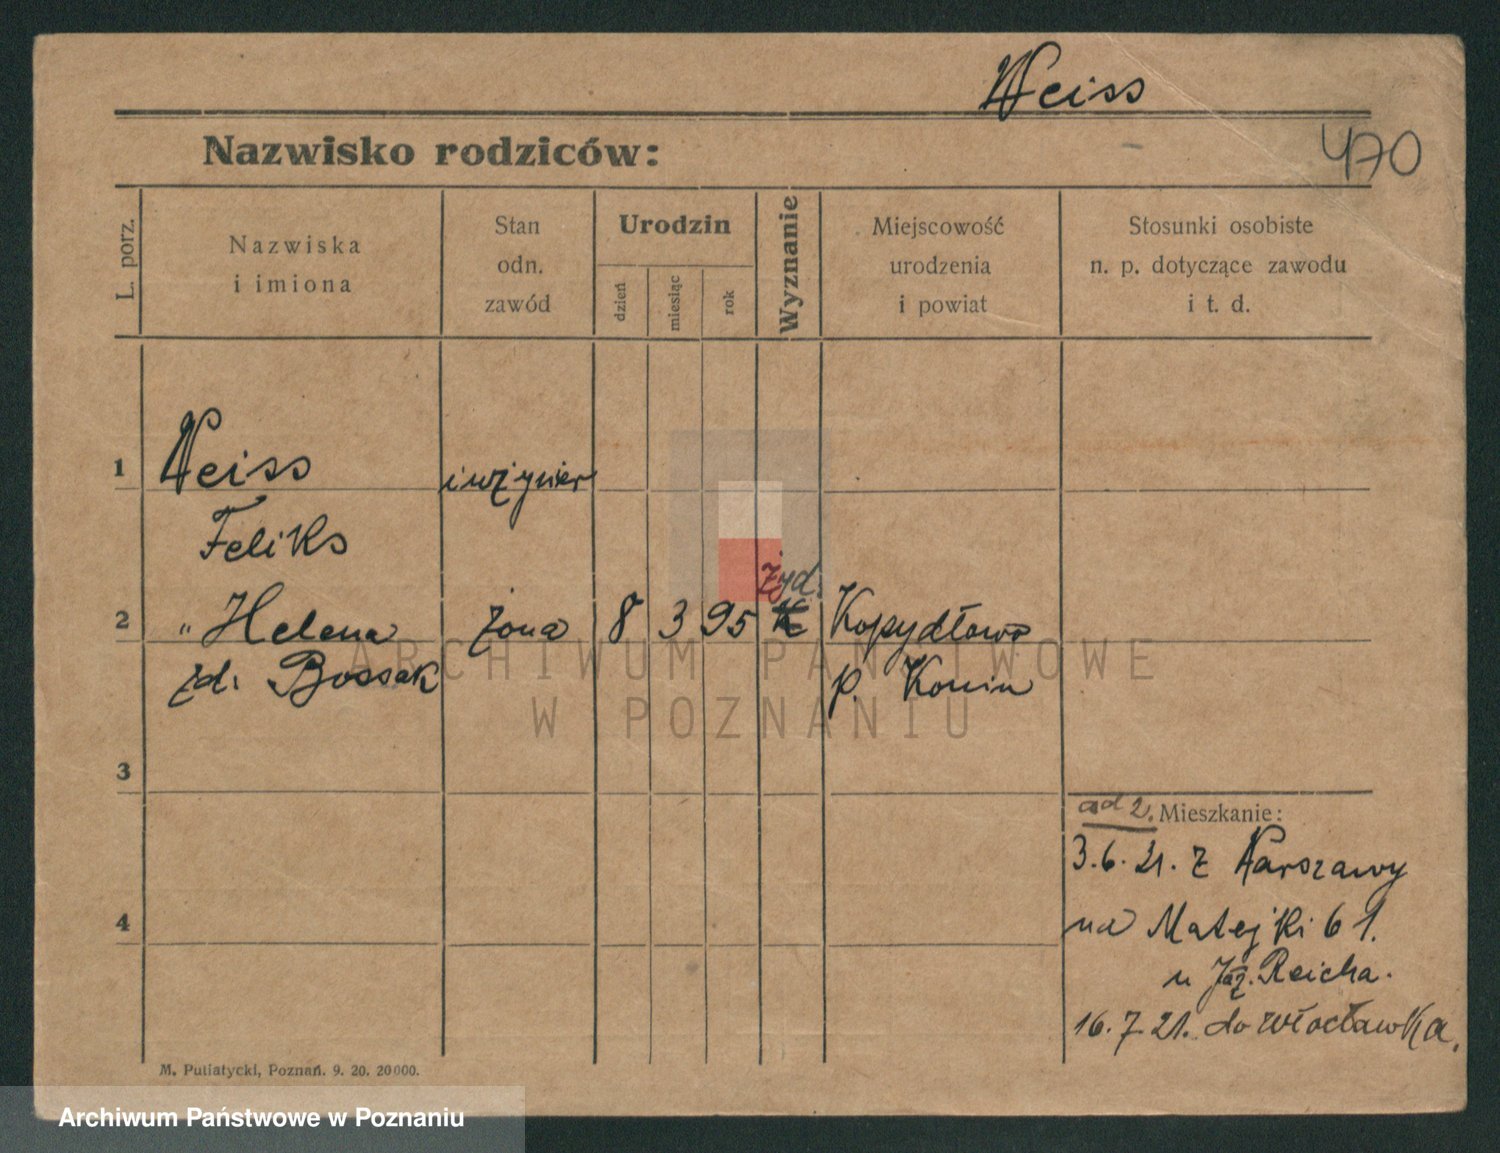 Weiss
470
Nazwisko rodziców:
L. porz.
Nazwiska
i imiona
Stan
odn.
zawód
Urodzin
dzień
miesiąc
rok
Wyznanie
Miejscowość
urodzenia
i powiat
Stosunki osobiste
n. p. dotyczące zawodu
i t. d.
1 Weiss inżynier
Feliks
żyd.
2 " Helena żona 8 3 95 K Kopydłowo
zd. Bossak p. Konin
ARCHIWUM PAŃSTWOWE
W POZNANIU
3
ad 2. Mieszkanie:
3.6.21. z Warszawy
4
na Matejki 61.
u Inż. Reicha.
16.7.21. do Włocławka.
M. Putiatycki, Poznań. 9. 20. 20000.
Archiwum Państwowe w Poznaniu